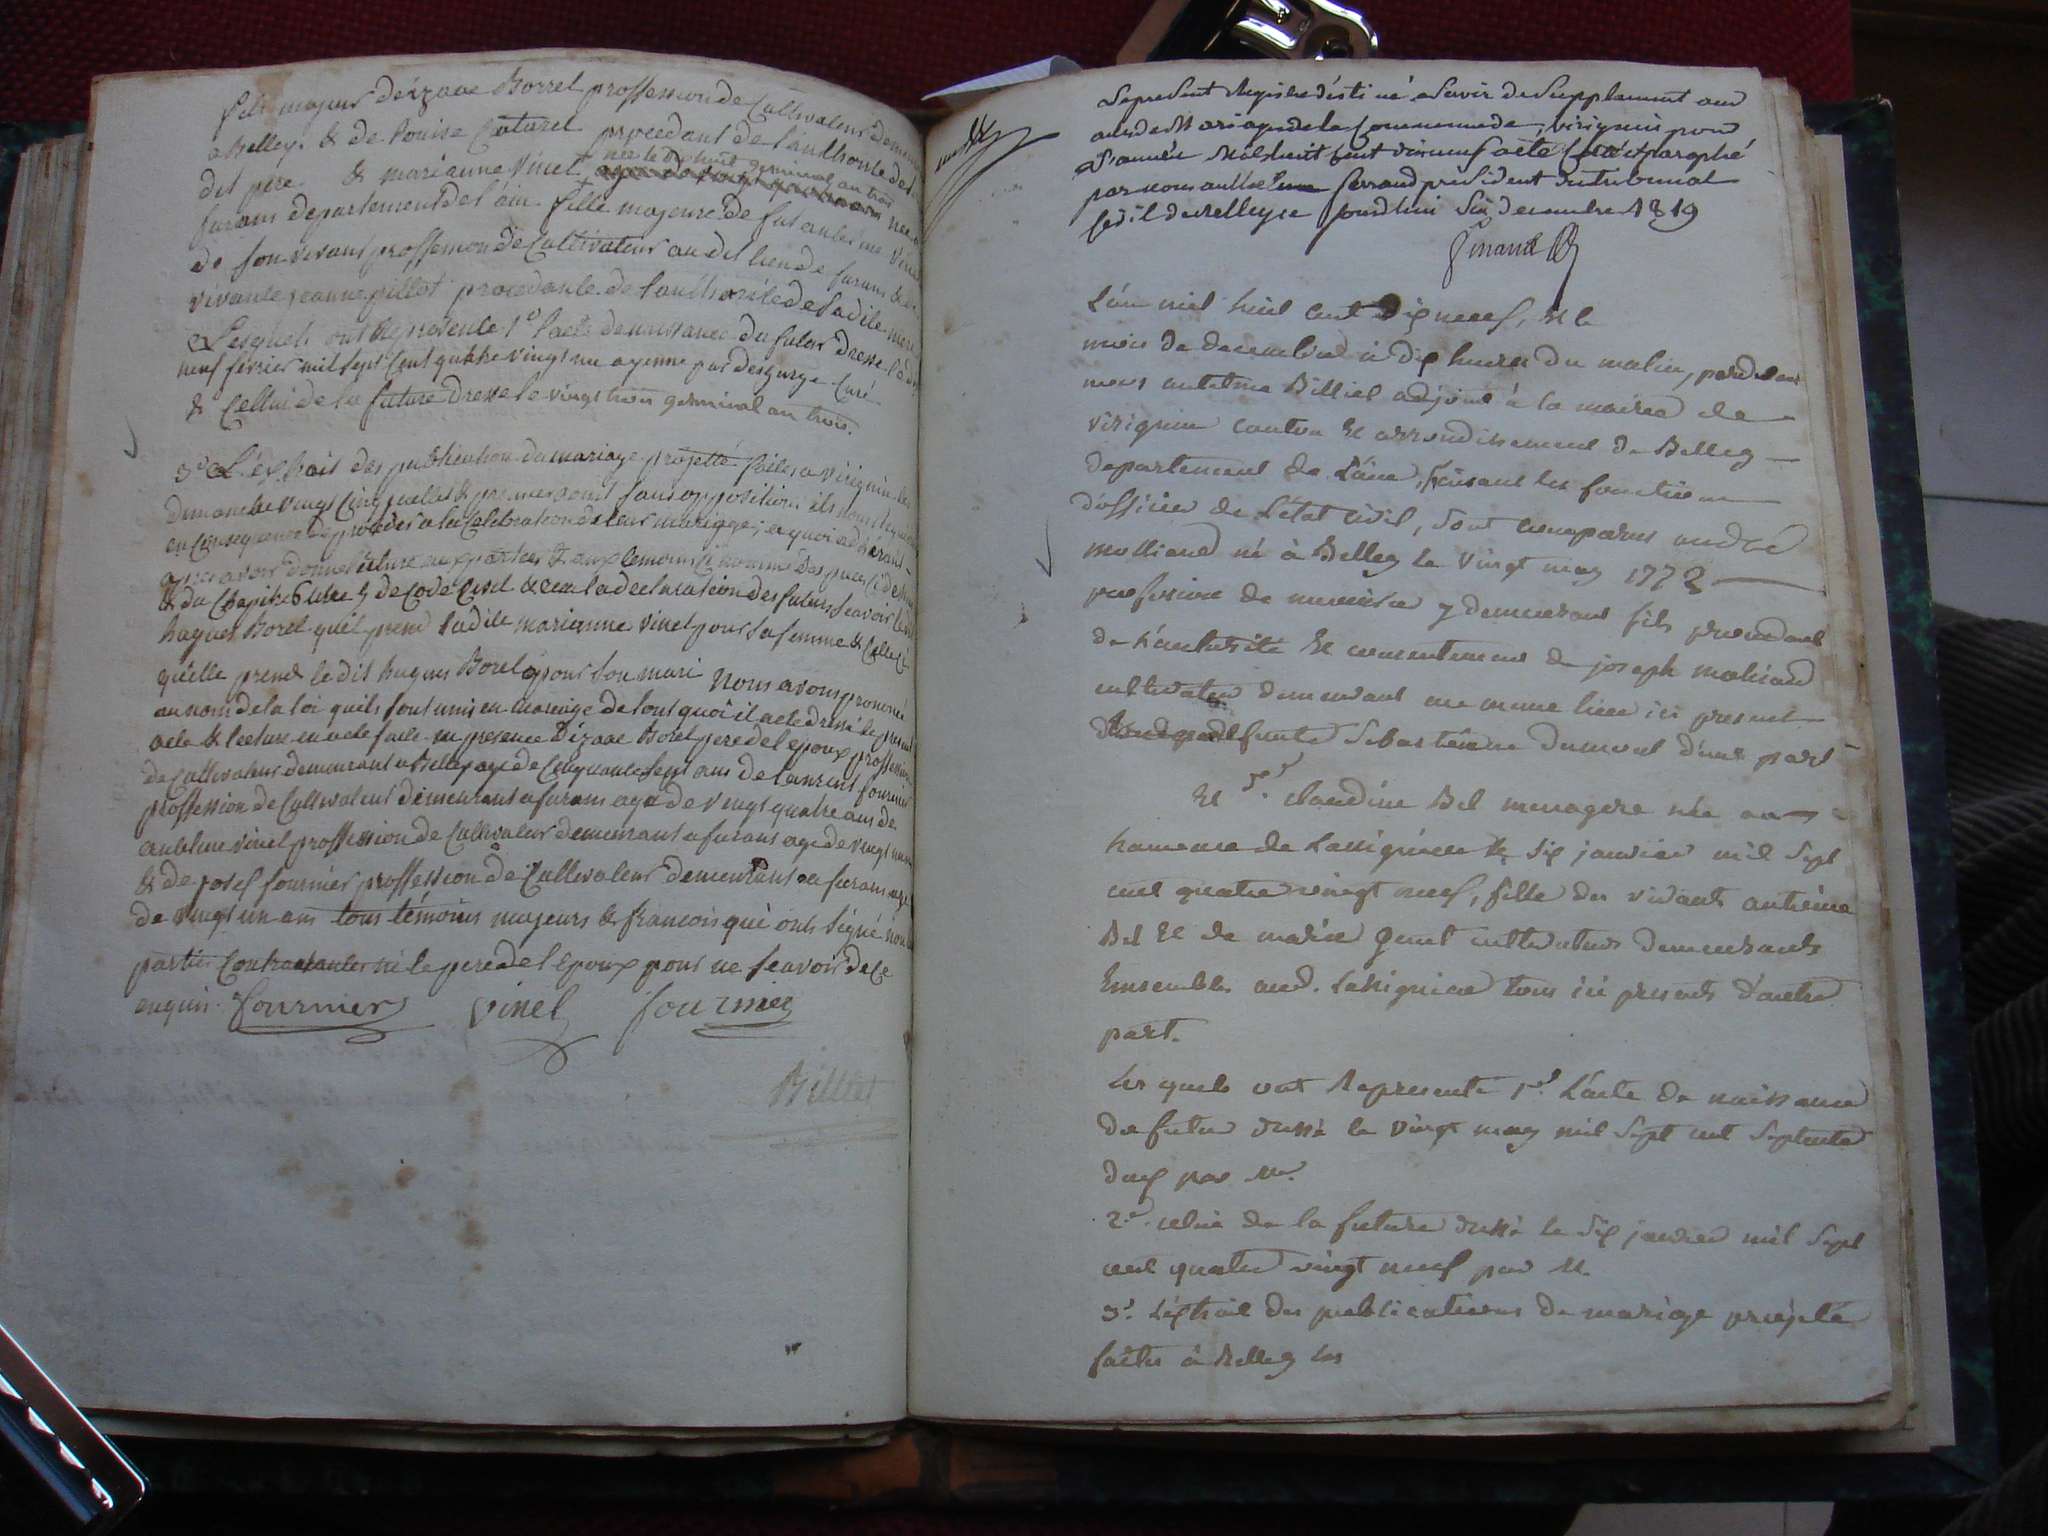 fils majeur d'izaac Borrel proffession de Cultivateur demeurant
a Belley & de Louise Caturel procedant de l'authorité de
dit pere & marianne Vinet née le dix huit germinal an trois
furans departement de l'ain fille majeure de fut antelme Vinet
de son vivant proffession de Cultivateur au dit lieu de furans & de
vivante jeanne pillot procedante de l'authorité de la dite mere
Lesquels ont Representé 1° l'acte de naissance du futur dressé le dix
neuf fevrier mil sept Cent quatre vingt un a yenne par Curé
& Cellui de la future dressé le vingt trois germinal an trois.
3° L'extrait des publication du mariage projetté faites a Virignin les
dimanche vingt Cinq juillet & premier aout sans opposition ils nous
en Consequence de proceder a la Celebration de leur mariage; a quoi adhérant
apres avoir donné lecture aux parties & aux temoins
& du Chapitre 6 titre 5 de Code Civil & recu la declaration des futurs scavoir
hugues Borel qu'il prend la dite marianne Vinet pour sa femme & Celle Ci
qu'elle prend le dit hugues Borel pour son mari Nous avons prononcé
au nom de la loi qu'ils sont unis en mariage de tout quoi il a été dressé le present
acte & lecture en a été faite en presence d'izaac Borel pere de l'epoux proffession
de Cultivateur demeurant a Belley agé de Cinquante sept ans de Laurent fournier
proffession de Cultivateur demeurant a furans agé de vingt quatre ans de
antelme Vinet proffession de Cultivateur demeurant a furans agé de vingt
& de josef fournier proffession de Cultivateur demeurant a furans agé
de vingt un ans tous témoins majeurs & francois qui ont signé non les
parties Contractantes ni le pere de l'epoux pour ne scavoir de ce
enquis. Fournier Vinet fournier
Billiet
Le present Registre destiné a servir de Supplement aux
actes de Mariages de la Commune de virignin pour
L'année Mil huit Cent dix neuf a été Coté et paraphé
par nous president du tribunal
Civil de Belley ce jourdhui Six decembre 1819
L'an mil huit cent dix neuf, et le
mois de decembre à dix heures du matin, pardevant
nous antelme Billiet adjoint à la mairie de
virignin canton et arrondissement de Belley
departement de L'ain, faisant les fonctions
d'officier de L'état Civil, sont comparus andré
molliand né à Belley le Vingt may 1772
profession de menuisier y demeurant fils procedant
de L'autorité et consentement de joseph moliand
cultivateur demeurant au meme lieu ici present
defunte Sebastienne dumont d'une part
Et claudine Bel menagere née au
hameau de Lassignieu le six janvier mil sept
cent quatre vingt neuf, fille des vivants antelme
Bel et de marie cultivateurs demeurants
Ensembles aud. Lassignieu tous ici presents d'autre
part.
Les quels ont Representé 1° L'acte de naissance
du futur dressé le vingt may mil sept cent septante
deux par Mr.
2° celui de la future dressé le six janvier mil sept
cent quatre vingt neuf par M.
3° L'extrait des publications de mariage projeté
faites à Belley les